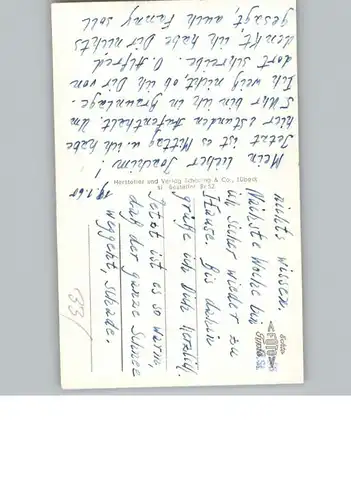 Mein lieber Joachim!
Jetzt ist es Mittag u. ich habe
hier 2 Stunden Aufenthalt. Um
5 Uhr bin ich in Braunlage.
Ich weiß nicht, ob ich Dir von
dort schreibe. O. Alfred
denkt, ich habe Dir nichts
gesagt, auch Fanny soll
nichts wissen.
Nächste Woche bin
ich sicher wieder zu
Hause. Bis dahin
grüße ich Dich herzlich.
Jetzt ist es so warm,
daß der ganze Schnee
weggeht, schade.
Hersteller und Verlag Schöning & Co., Lübeck
FOTO
331